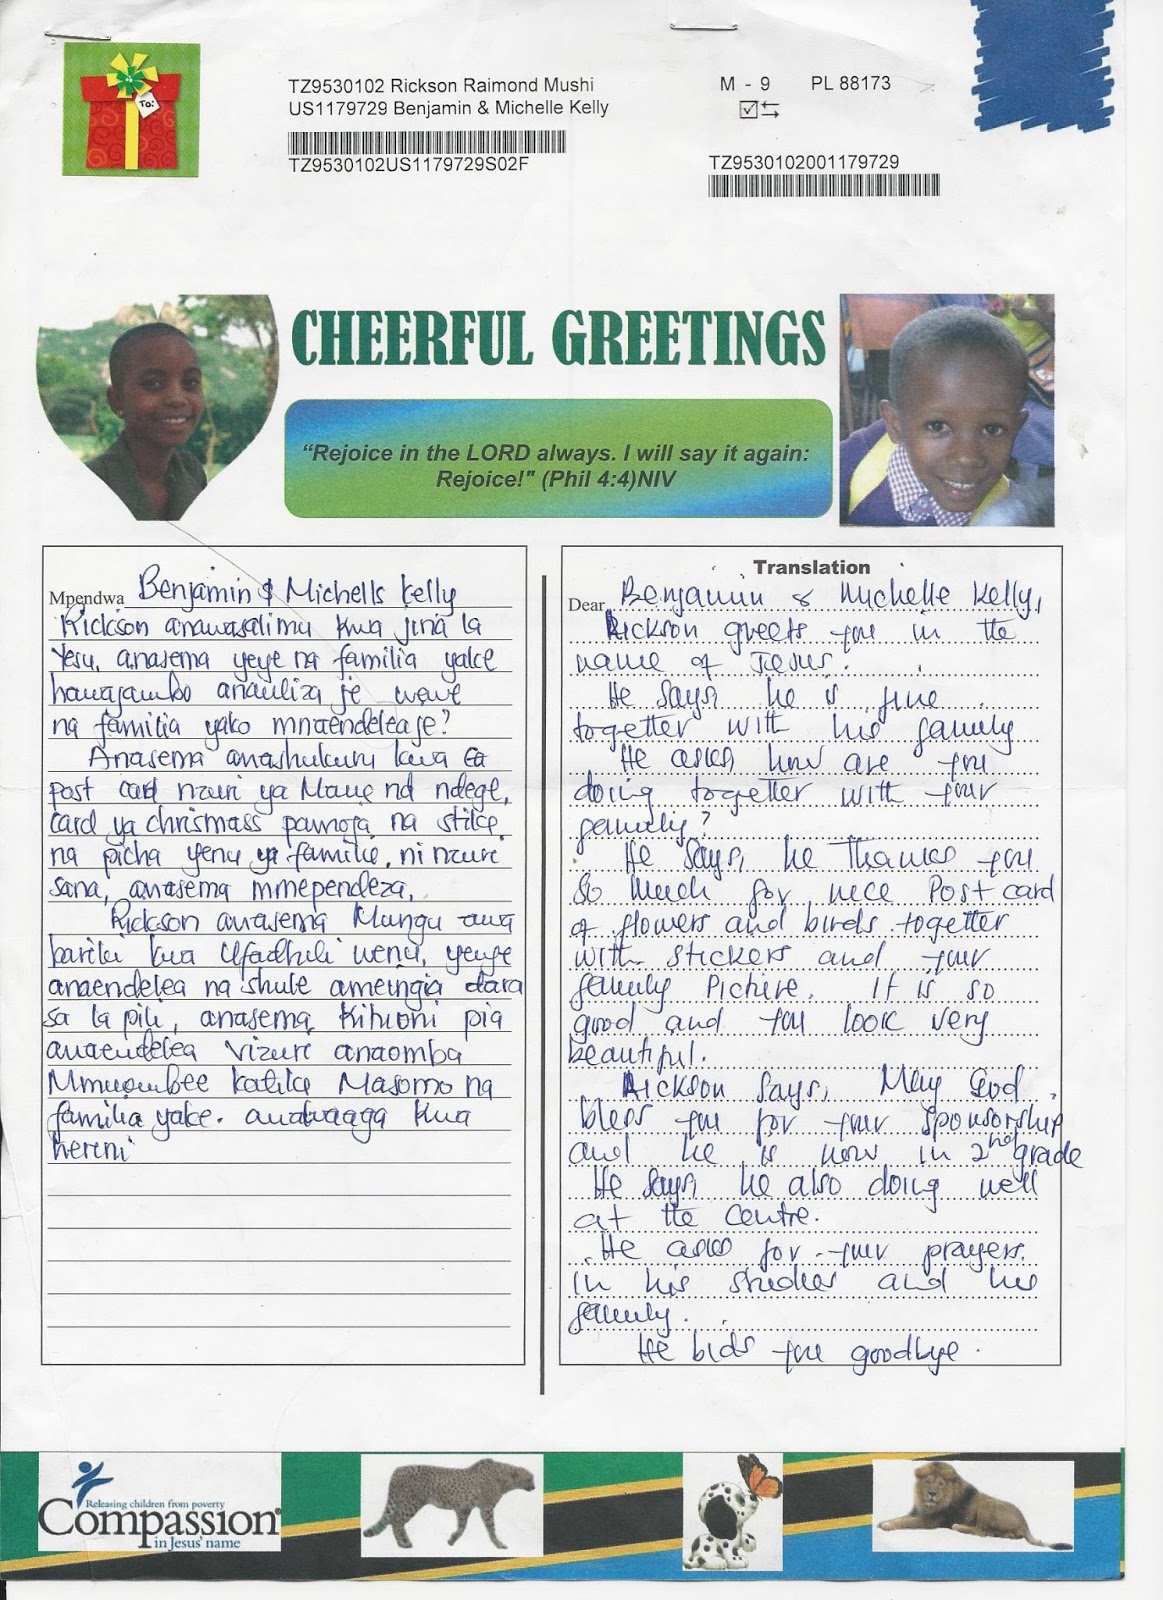 TZ9530102 Rickson Raimond Mushi
US1179729 Benjamin & Michelle Kelly
TZ9530102US1179729S02F
M - 9 PL 88173
TZ9530102001179729
To:
CHEERFUL GREETINGS
“Rejoice in the LORD always. I will say it again:
Rejoice!" (Phil 4:4)NIV
Mpendwa Benjamin & Michells Kelly
Rickson anawasalimu kwa jina la
Yesu, anasema yeye na familia yake
hawajambo anauliza je wewe
na familia yako mnaendeleaje?
Anasema anashukuru kwa
post card nzuri ya Maue na ndege,
card ya chrismass pamoja na stike
na picha yenu ya familie, ni nzuri
sana, anasema mmependeza,
Rickson anasema Mungu awa
bariki kwa Ufadhili wenu, yeye
anaendelea na shule ameingia dara
sa la pili, anasema Kituoni pia
anaendelea vizuri anaomba
Mmuombee katika Masomo na
familia yake. anawaaga kwa
hereni
Translation
Dear Benjamin & Michelle Kelly,
Rickson greets you in the
name of Jesus.
He says, he is fine
together with his family
He asks, how are you
doing together with your
family?
He says, he thanks you
so much for nice Post card
of flowers and birds together
with stickers and your
family Picture. It is so
good and you look very
beautiful.
Rickson says, May God
bless you for your sponsorship
and he is now in 2nd grade
He says, he also doing well
at the centre.
He asks for your prayers.
in his studies and his
family.
He bids you goodbye.
Releasing children from poverty
Compassion
in Jesus' name